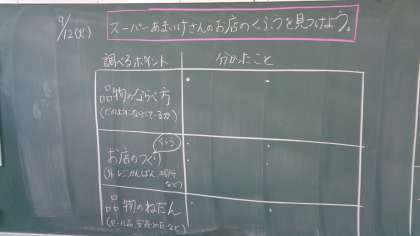 9/12(火)
スーパーあまいけさんのお店のくふうを見つけよう。
調べるポイント
分かったこと
品物のならべ方
(どのようにならべているか)
くふう
お店のつくり
など)
品物のねだん